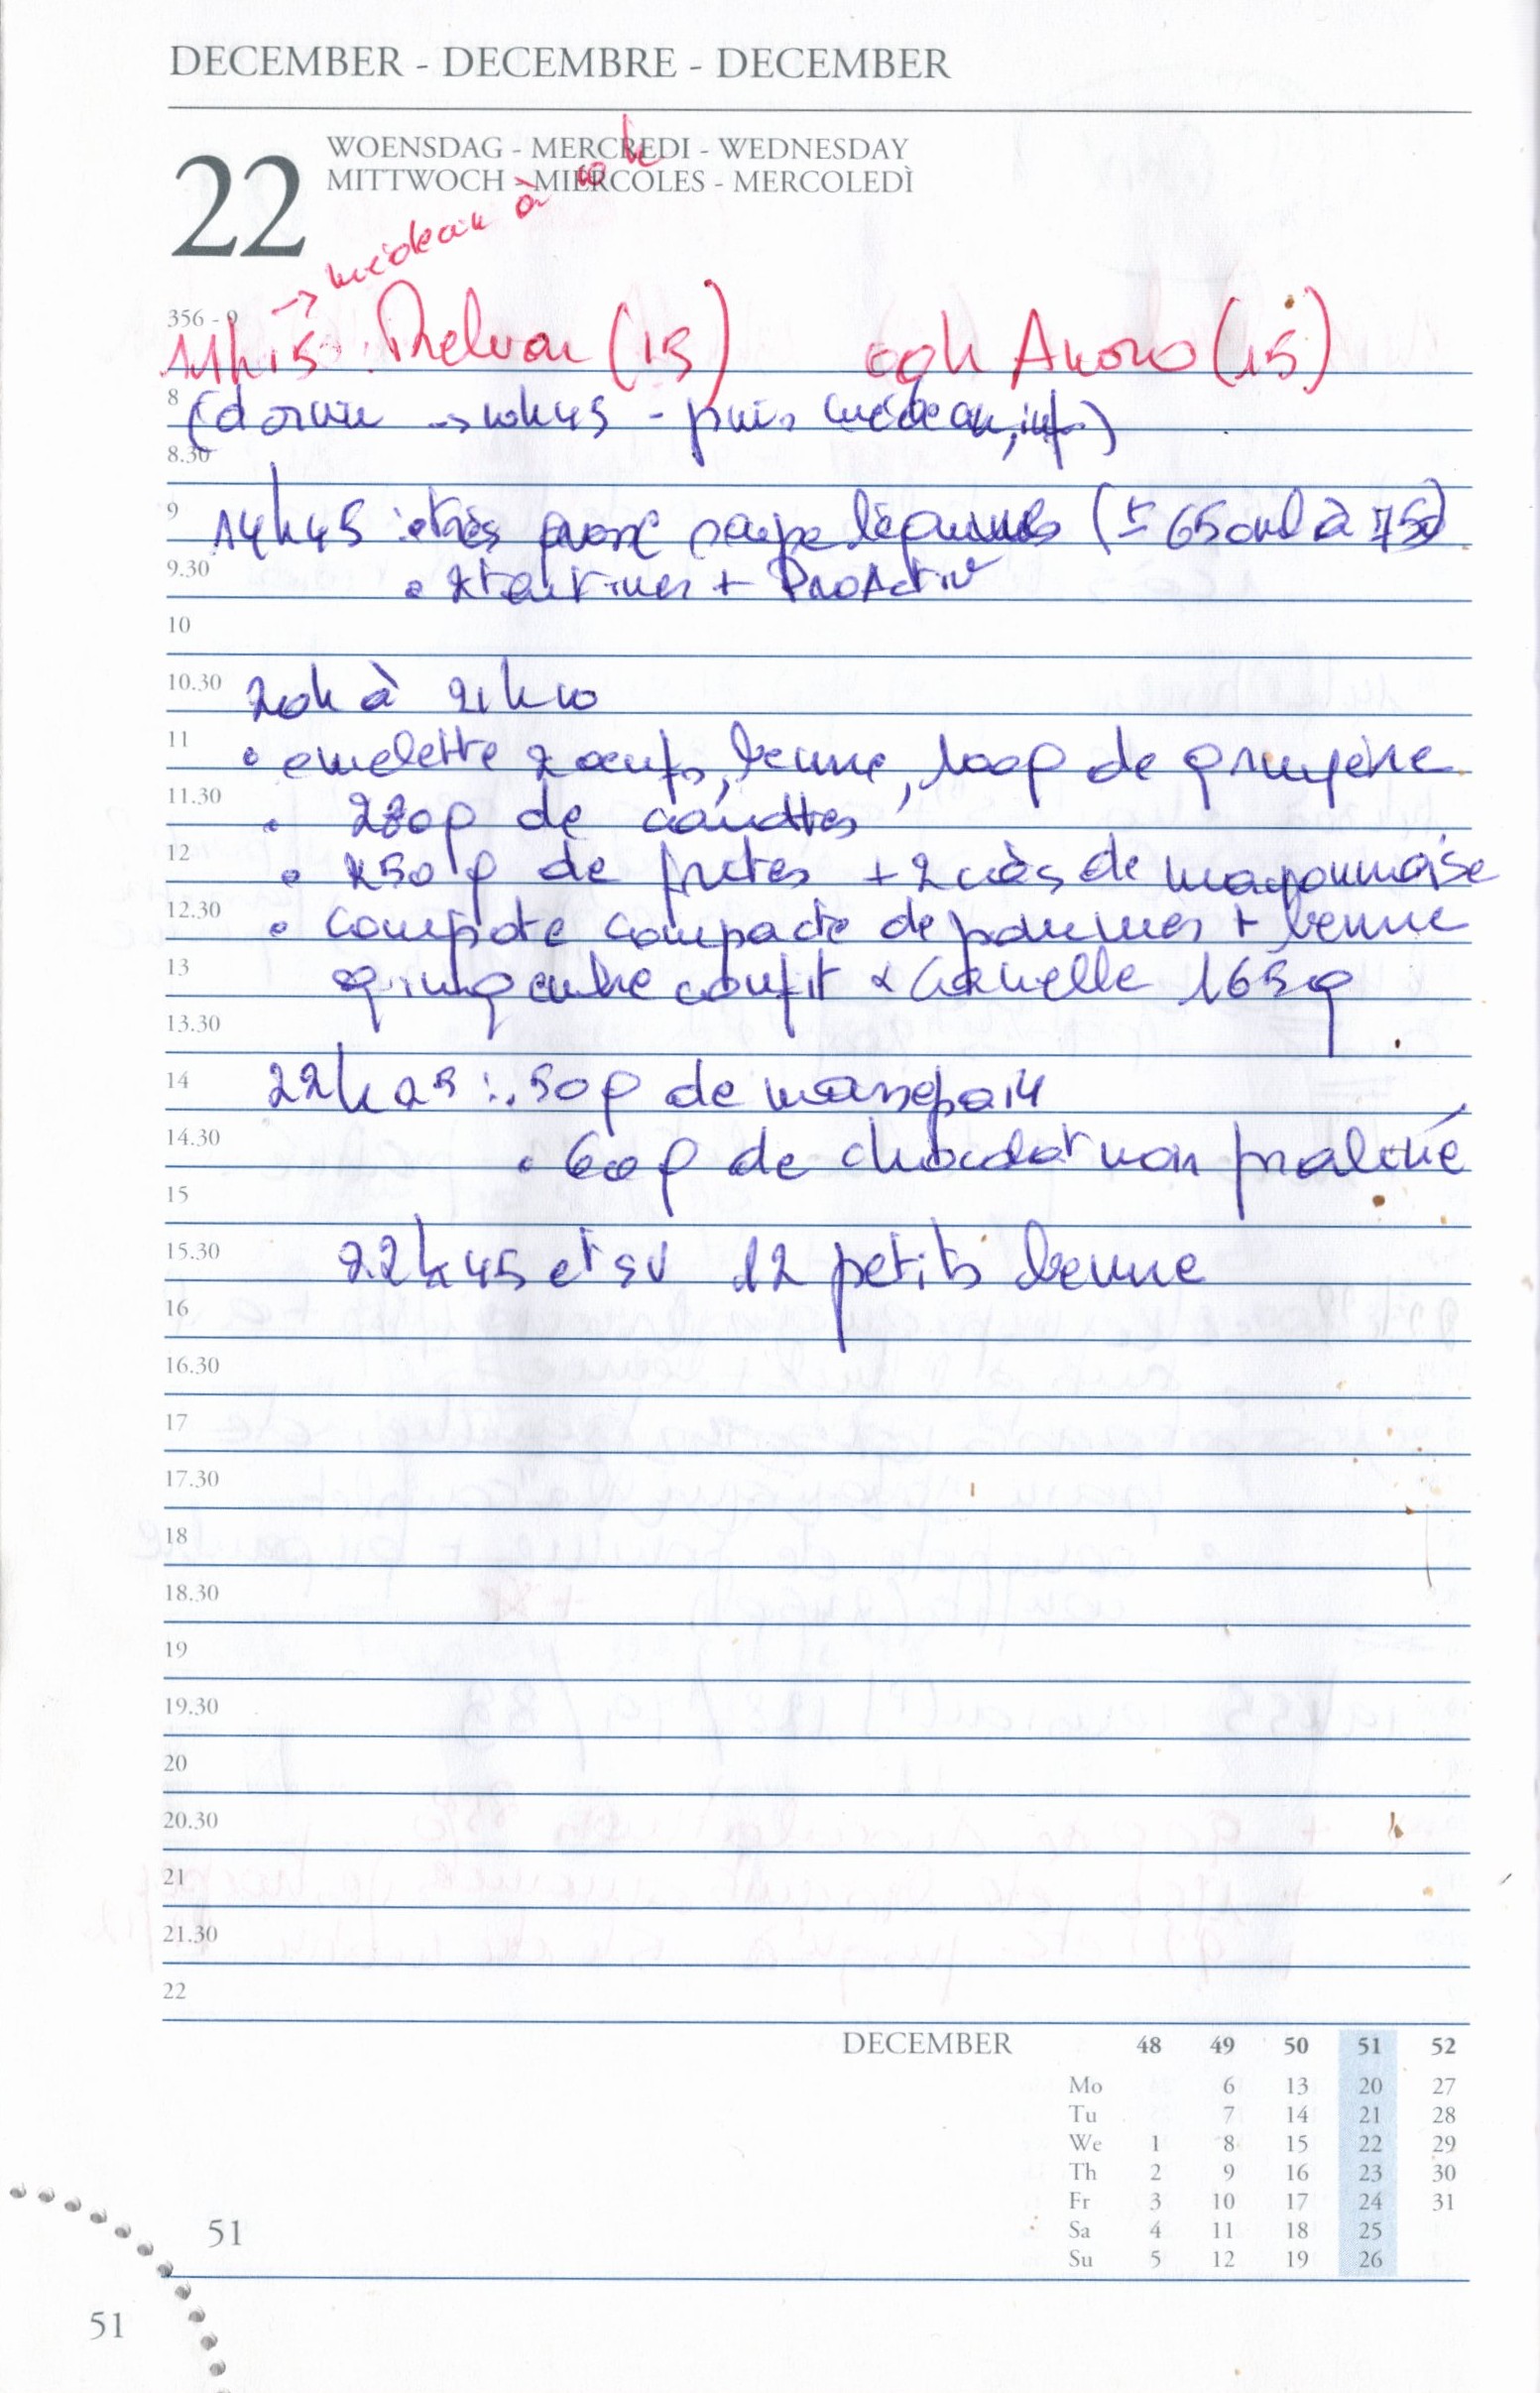 DECEMBER - DECEMBRE - DECEMBER
22
WOENSDAG - MERCREDI - WEDNESDAY
MITTWOCH - MIERCOLES - MERCOLEDÌ
→ médecin à 10h
356 - 9
11h15 : Relvar (15) 00h Anoro (15)
8
(dormi → 10h45 - puis médecin, inf.)
8.30
9
14h45 : très grosse soupe légumes (± 650ml à 750)
9.30
• 2 tartines + ProActiv
10
10.30
20h à 21h10
11
• omelette 2 oeufs, beurre, 100g de gruyère
11.30
• 280g de carottes
12
• 250 g de frites + 2 càs de mayonnaise
12.30
• compote compacte de pommes + beurre
13
gingembre confit & Cannelle 165g
13.30
14
22h25 : . 50g de massepain
14.30
• 60g de chocolat non praliné
15
15.30
22h45 et sv 12 petits beurre
16
16.30
17
17.30
18
18.30
19
19.30
20
20.30
21
21.30
22
DECEMBER 48 49 50 51 52
Mo 6 13 20 27
Tu 7 14 21 28
We 1 8 15 22 29
Th 2 9 16 23 30
Fr 3 10 17 24 31
Sa 4 11 18 25
Su 5 12 19 26
51
51